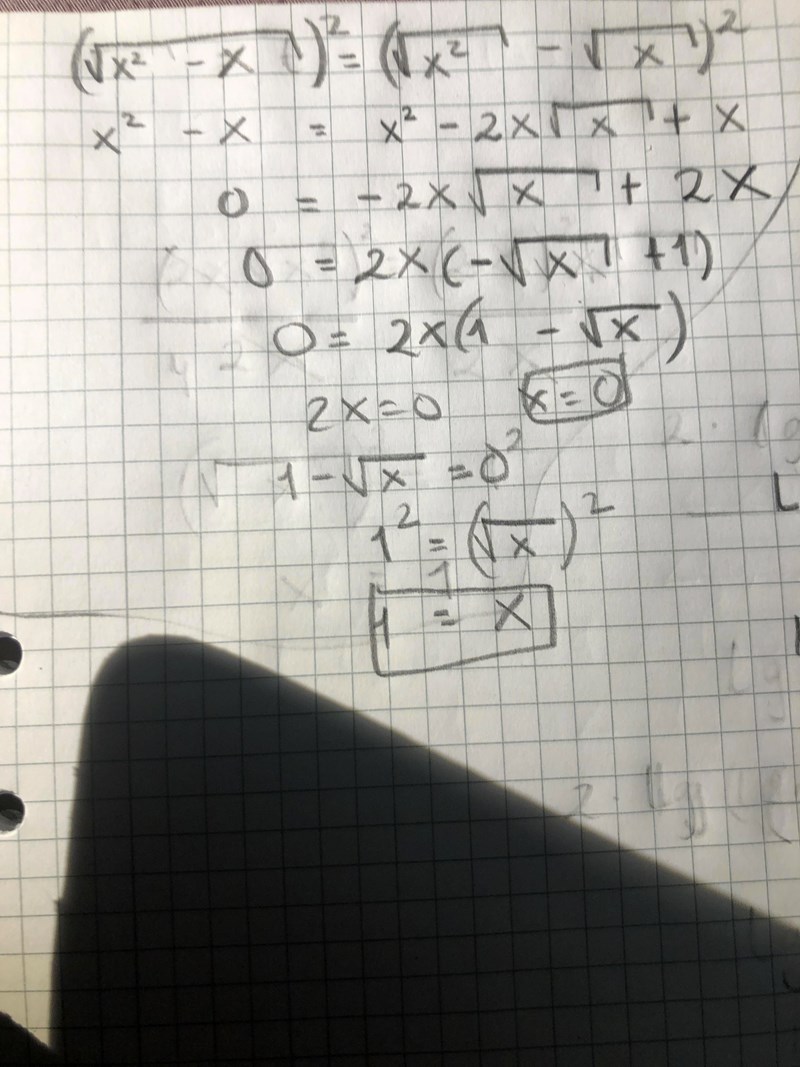 (√(x² - x))² = (√(x²) - √(x))²
x² - x = x² - 2x√x + x
0 = -2x√x + 2x
0 = 2x(-√x + 1)
0 = 2x(1 - √x)
2x = 0 x = 0
1 - √x = 0²
1² = (√x)²
1 = x